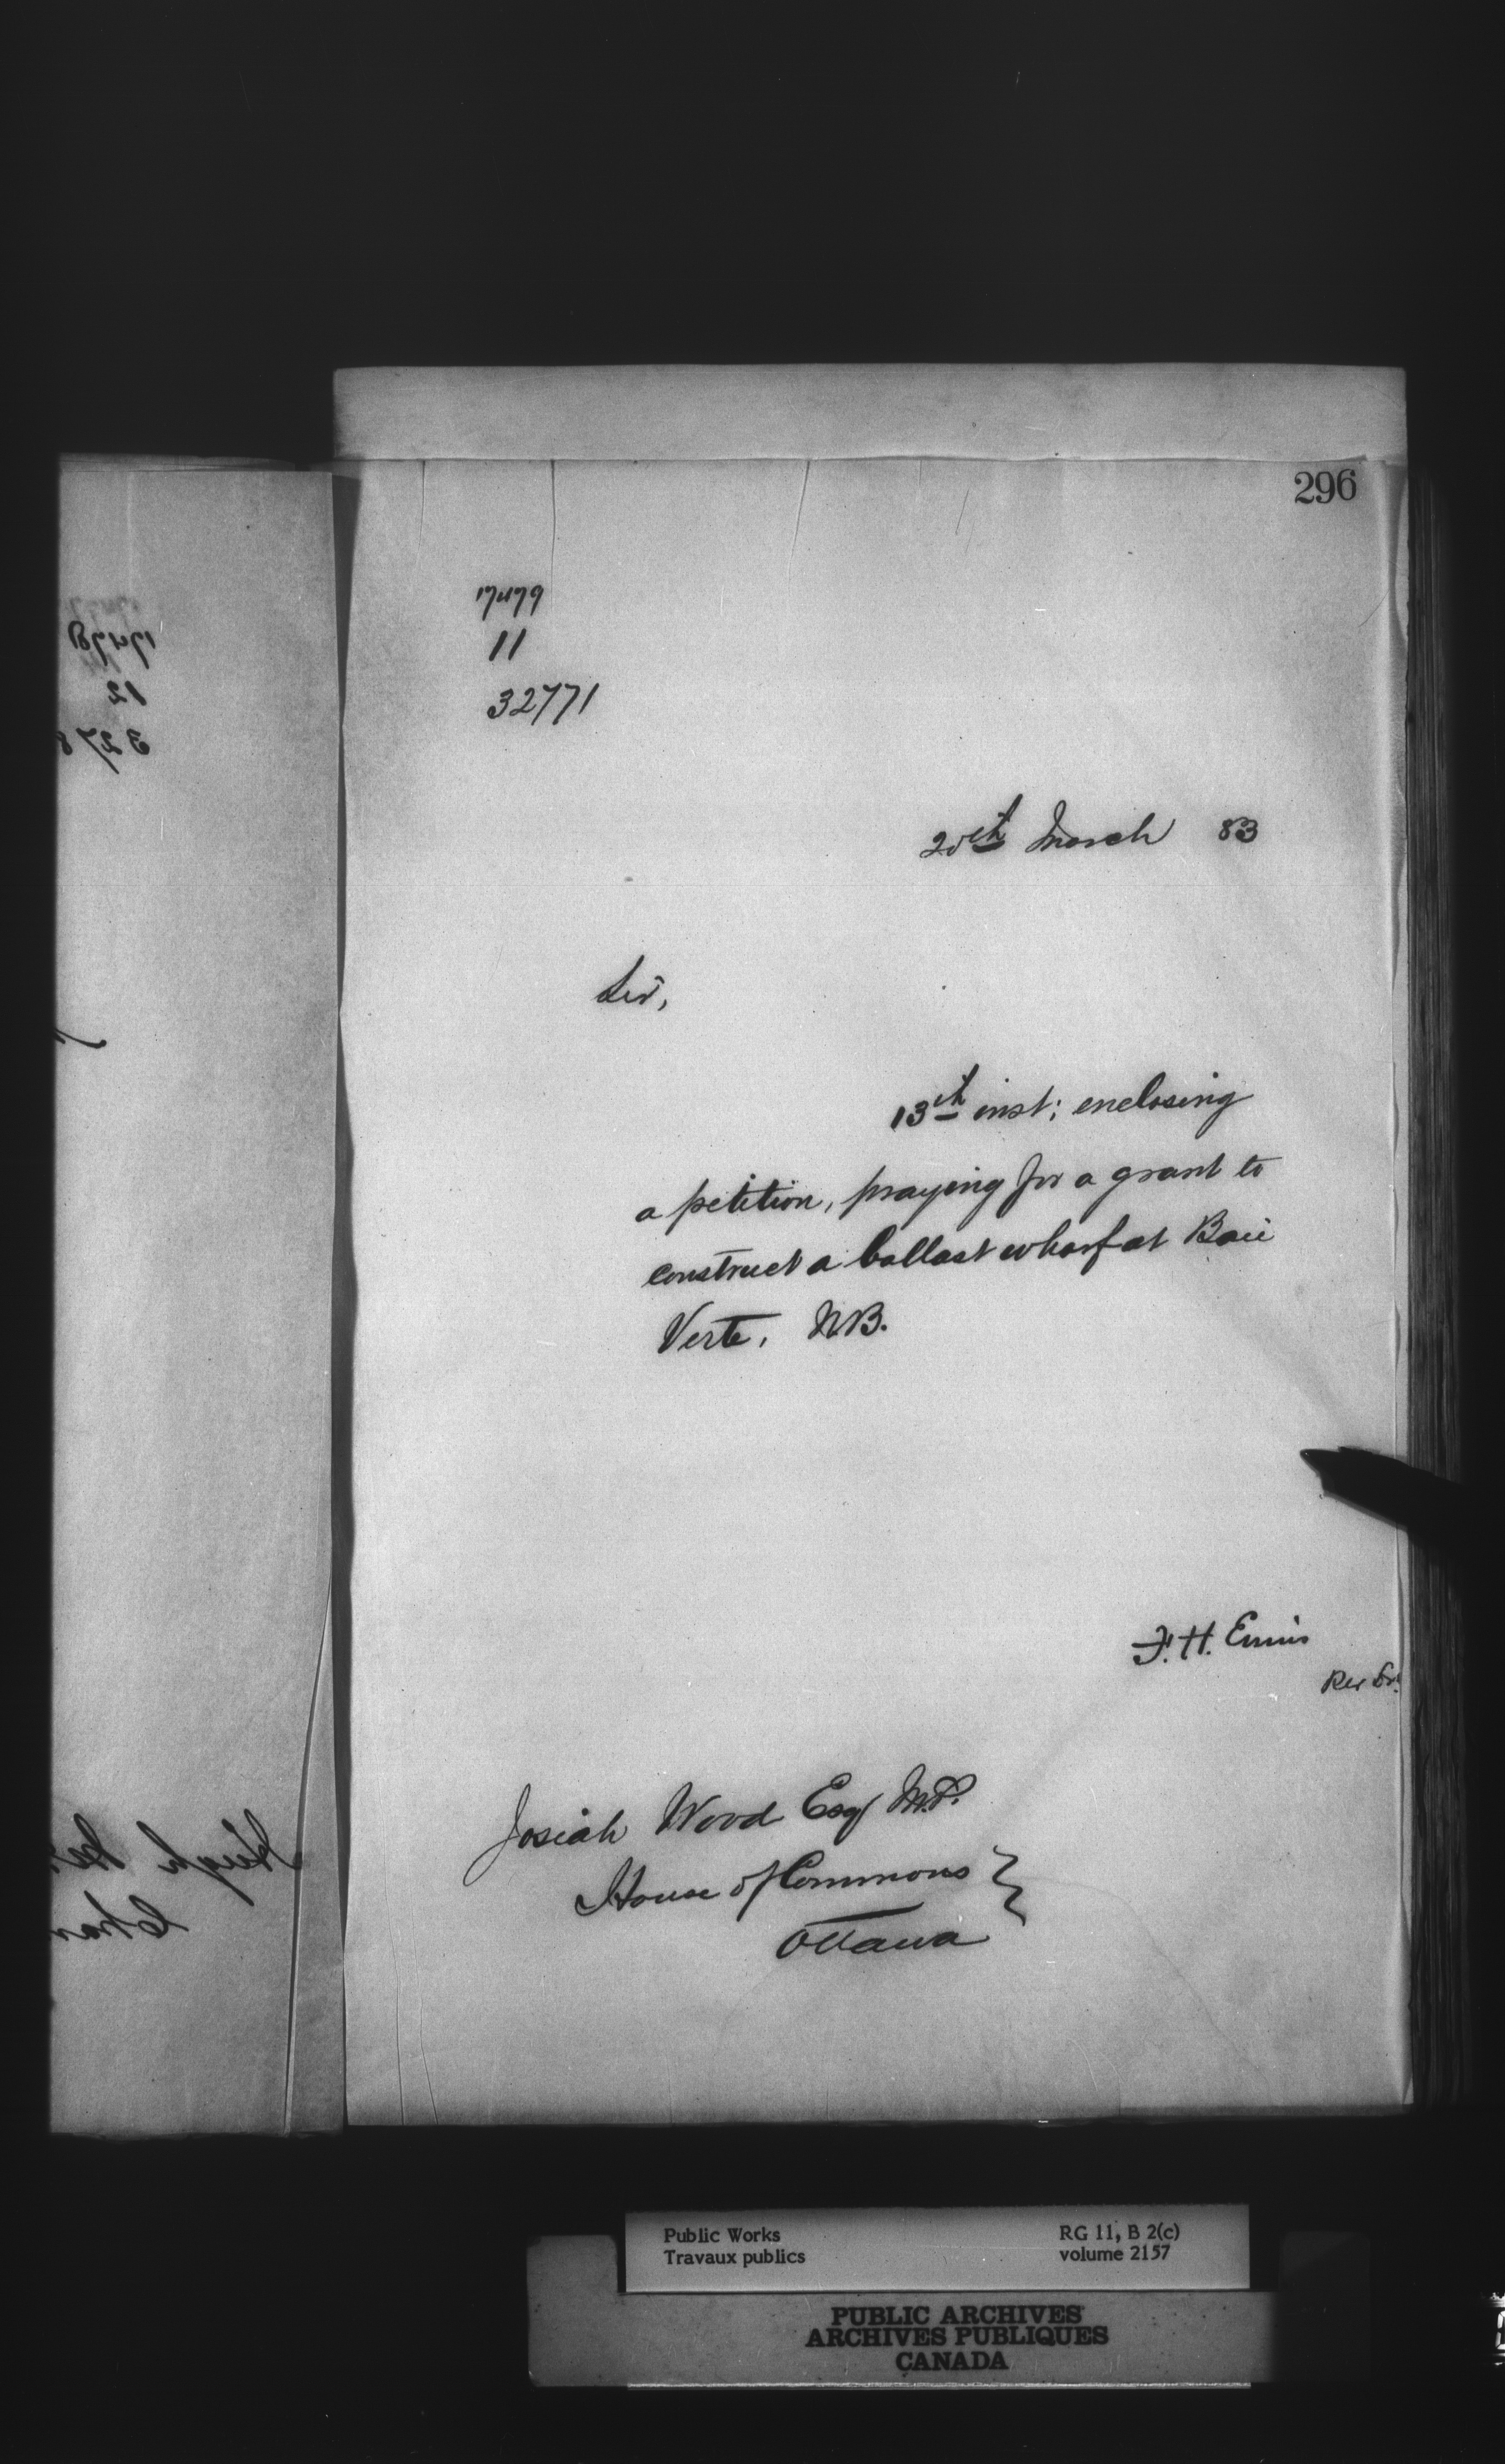 296
17479
11
32771
20th March 83
Sir,
13th inst; enclosing
a petition, praying for a grant to
construct a ballast wharf at Baie
Verte, N.B.
F. H. Ennis
Josiah Wood Esq M.P.
House of Commons
Ottawa
17478
12
3278
Hugh
Public Works
Travaux publics
RG 11, B 2(c)
volume 2157
PUBLIC ARCHIVES
ARCHIVES PUBLIQUES
CANADA